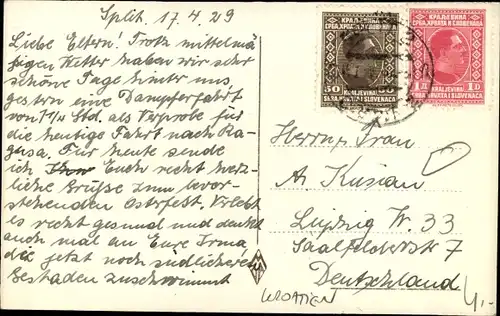 Split. 17.4.29
Liebe Eltern! Trotz mittelmä
ßigen Wetter haben wir sehr
schöne Tage hinter uns,
gestern eine Dampferfahrt
von 1½ Std. als Vorprobe für
die heutige Fahrt nach Ra-
gusa. Für heute sende
ich Euch recht herz-
liche Grüsse zum bevor-
stehenden Osterfest. Verlebt
es recht gesund und denkt
auch mal an Eure Irma
die jetzt noch südlicheren
Gestaden zuschwimmt
КРАЉЕВИНА
СРБА, ХРВАТА И СЛОВЕНАЦА
50
KRALJEVINA
SRBA, HRVATA I SLOVENACA
КРАЉЕВИНА
СРБА, ХРВАТА И СЛОВЕНАЦА
1Д 1D
KRALJEVINA
SRBA, HRVATA I SLOVENACA
Herrn u. Frau
A. Kusian
Leipzig W. 33
Saalfelderstr 7
Deutschland
KROATIEN
4,-